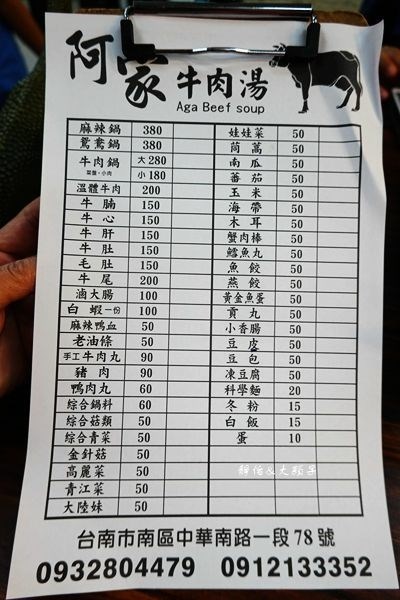 阿家牛肉湯
Aga Beef soup
麻辣鍋 380
鴛鴦鍋 380
牛肉鍋 大280
菜盤、小肉 小180
溫體牛肉 200
牛腩 150
牛心 150
牛肝 150
牛肚 150
毛肚 150
牛尾 200
滷大腸 100
白蝦一份 100
麻辣鴨血 50
老油條 50
手工牛肉丸 90
豬肉 90
鴨肉丸 60
綜合鍋料 60
綜合菇類 50
綜合青菜 50
金針菇 50
高麗菜 50
青江菜 50
大陸妹 50
娃娃菜 50
茼萵 50
南瓜 50
番茄 50
玉米 50
海帶 50
木耳 50
蟹肉棒 50
鱈魚丸 50
魚餃 50
燕餃 50
黃金魚蛋 50
貢丸 50
小香腸 50
豆皮 50
豆包 50
凍豆腐 50
科學麵 20
冬粉 15
白飯 15
蛋 10
靜怡&大顆子
台南市南區中華南路一段78號
0932804479 0912133352